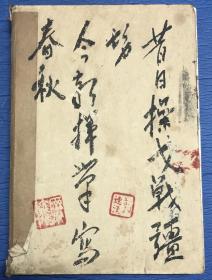 昔日操戈戰疆
場
今朝揮筆寫
春秋